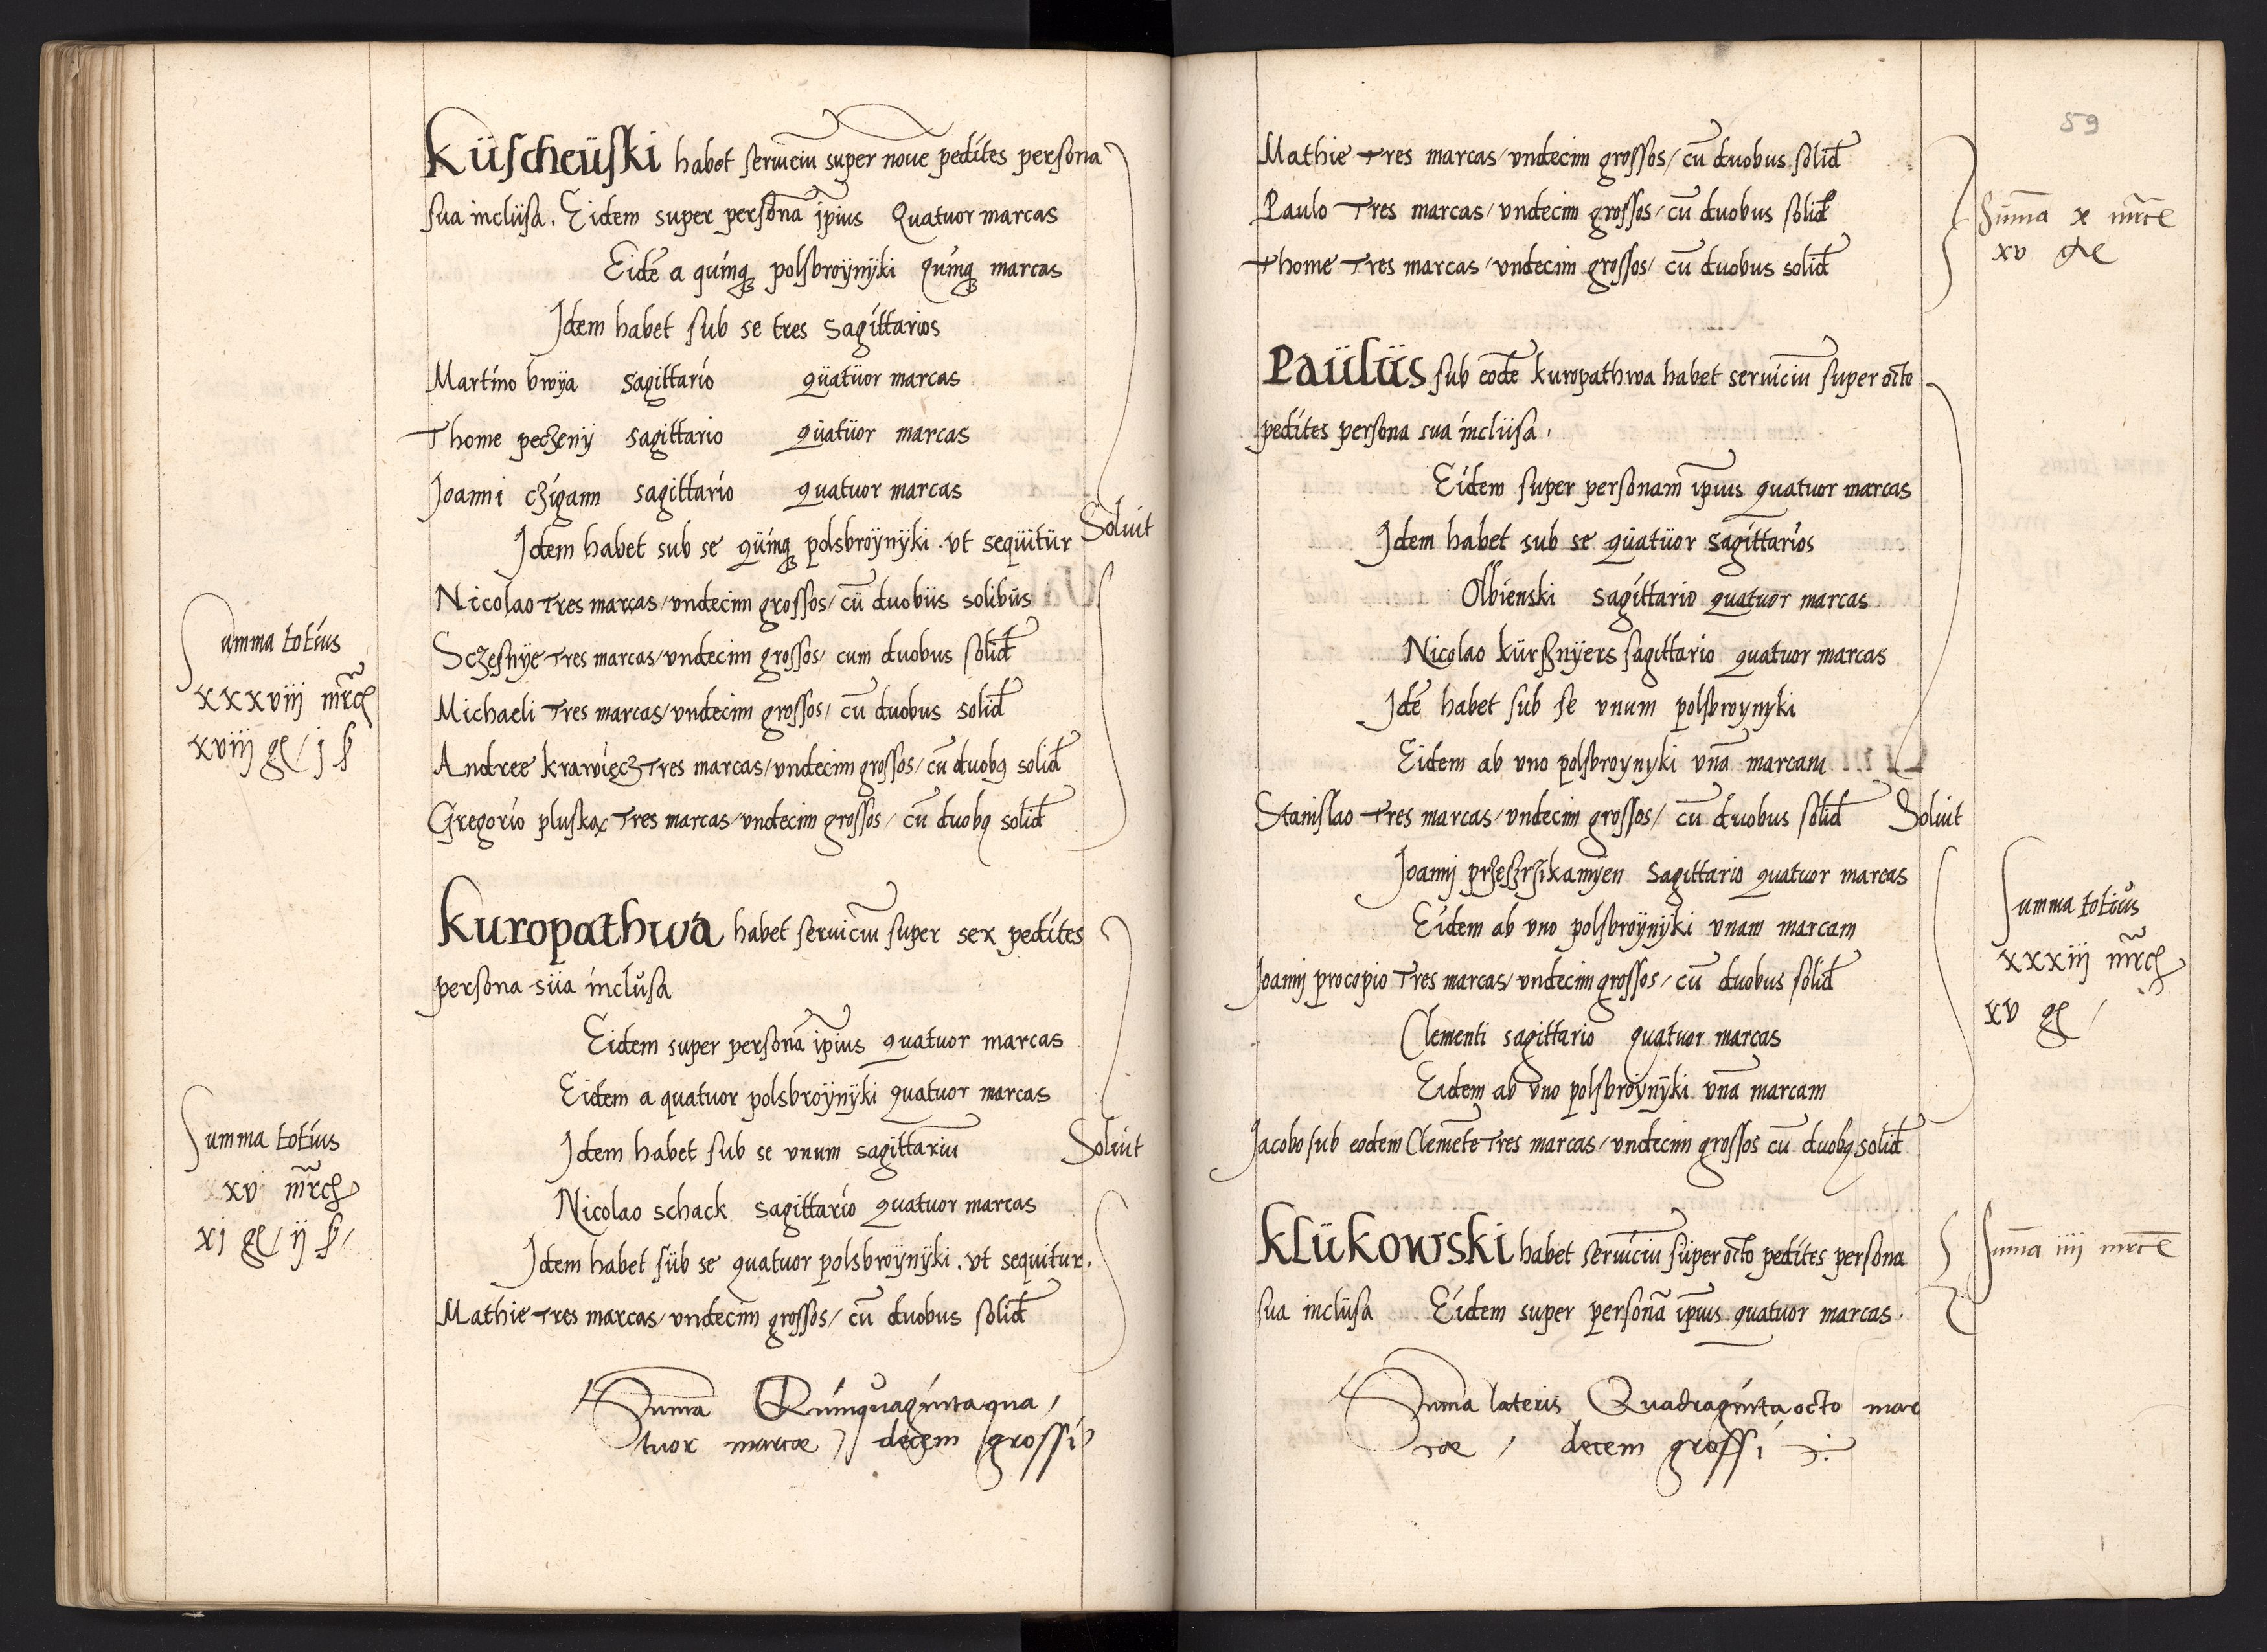 Küscheüski habet seruiciũ super noue pedites persona
sua inclüsa. Eidem super personã ip̃ius Quatuor marcas
Eidẽ a quinqꝫ polsbroÿnÿki quinqꝫ marcas
Idem habet sub se tres sagittarios
Martino broÿa sagittario quatuor marcas
Thome peczenÿ sagittario quatuor marcas
Joanni czigann sagittario quatuor marcas
Idem habet sub se quinqꝫ polsbroÿnÿki . vt sequitur
Soluit
Nicolao Tres marcas / vndecim grossos / cũ duobus solibus
Sczesnÿe Tres marcas / vndecim grossos / cum duobus solid
Michaeli Tres marcas / vndecim grossos / cũ duobus solid
Andree krawięcz Tres marcas / vndecim grossos / cũ duobꝯ solid
Gregorio pluskax Tres marcas / vndecim grossos / cũ duobꝯ solid
Summa totius
xxxviij mrc
xviij g / j s
Kuropathwa habet seruiciũ super sex pedites
persona süa inclusa
Eidem super personã ip̃ius quatuor marcas
Eidem a quatuor polsbroÿnÿki quatuor marcas
Idem habet sub se vnum sagittariũ
Soluit
Nicolao schack sagittario quatuor marcas
Idem habet süb se quatuor polsbroÿnÿki . vt sequitur .
Mathie Tres marcas / vndecim grossos / cũ duobus solid
Summa totius
xv mrc
xj g / ij s /
Suma Quinquagintaqua /
tuor marcae / decem grossi
59
Mathie Tres marcas / vndecim grossos / cũ duobus solid
Paulo Tres marcas / vndecim grossos / cũ duobus solid
Thome Tres marcas / vndecim grossos / cũ duobus solid
Sum̃a x mrc
xv g
Paülüs sub eodẽ kuropathwa habet seruiciũ super octo
pedites persona sua inclüsa .
Eidem super personam ip̃ius quatuor marcas
Idem habet sub se quatuor sagittarios
Olbienski sagittario quatuor marcas
Nicolao kürsznÿers sagittario quatuor marcas
Idẽ habet sub se vnum polsbroynyki
Eidem ab vno polsbroynyki vnã marcam
Stanislao Tres marcas / vndecim grossos / cũ duobus solid Soluit
Joanni przeszrzikamÿen sagittario quatuor marcas
Eidem ab vno polsbroÿnÿki vnam marcam
Joanni procopio Tres marcas / vndecim grossos / cũ duobus solid
Clementi sagittario quatuor marcas
Eidem ab vno polsbroÿnÿki vnã marcam
Jacobo sub eodem Clemẽte Tres marcas / vndecim grossos cũ duobꝯ solid
Summa totius
xxxiij mrc
xv g /
Klükowski habet seruiciũ süper octo pedites persona
sua inclüsa Eidem super personã ip̃ius quatuor marcas .
Sum̃a iiij mrc
Sum̃a lateris Quadragintaocto mar
cae / decem grossi